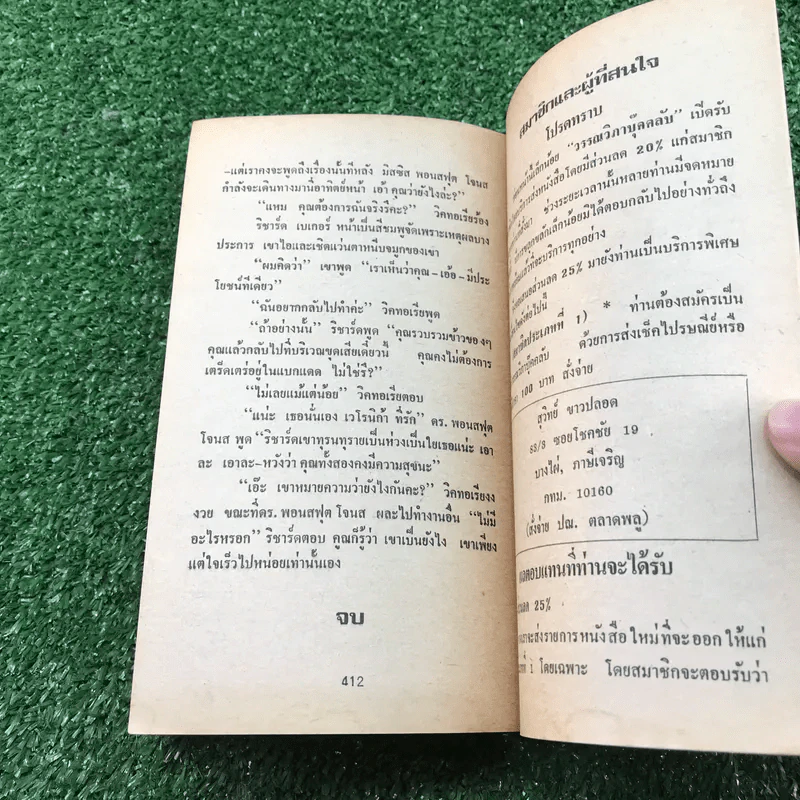 -แต่เราคงจะพูดถึงเรื่องนั้นทีหลัง มิสซิส พอนสฟุต โจนส
กำลังจะเดินทางมานี่อาทิตย์หน้า เอ้า คุณว่ายังไงล่ะ?”
“แหม คุณต้องการฉันจริงรึคะ?” วิคทอเรียร้อง
ริชาร์ด เบเกอร์ หน้าเป็นสีชมพูจัดเพราะเหตุผลบาง
ประการ เขาไอและเช็ดแว่นตาหนีบจมูกของเขา
“ผมคิดว่า” เขาพูด “เราเห็นว่าคุณ-เอ้อ-มีประ
โยชน์ทีเดียว”
“ฉันอยากกลับไปทำค่ะ” วิคทอเรียพูด
“ถ้าอย่างนั้น” ริชาร์ดพูด “คุณรวบรวมข้าวของๆ
คุณแล้วกลับไปที่บริเวณขุดเสียเดี๋ยวนี้ คุณคงไม่ต้องการ
เตร็ดเตร่อยู่ในแบกแดด ไม่ใช่รึ?”
“ไม่เลยแม้แต่น้อย” วิคทอเรียตอบ
“แน่ะ เธอนั่นเอง เวโรนิก้า ที่รัก” ดร. พอนสฟุต
โจนส พูด “ริชาร์ดเขาทุรนทุรายเป็นห่วงเป็นใยเธอแน่ะ เอา
ละ เอาละ-หวังว่า คุณทั้งสองคงมีความสุขนะ”
“เอ๊ะ เขาหมายความว่ายังไงกันคะ?” วิคทอเรียงง
งวย ขณะที่ดร. พอนสฟุต โจนส ผละไปทำงานอื่น “ไม่มี
อะไรหรอก” ริชาร์ดตอบ คุณก็รู้ว่า เขาเป็นยังไง เขาเพียง
แต่ใจเร็วไปหน่อยเท่านั้นเอง
จบ
412
สมาชิกและผู้ที่สนใจ
โปรดทราบ
เล็กน้อย “วรรณวิภาบุ๊คคลับ” เปิดรับ
ส่งหนังสือโดยมีส่วนลด 20% แก่สมาชิก
ช่วงระยะเวลานั้นหลายท่านมีจดหมาย
ขลุกขลักเล็กน้อยมิได้ตอบกลับไปอย่างทั่วถึง
ที่จะบริการทุกอย่าง
ส่วนลด 25% มายังท่านเป็นบริการพิเศษ
ต่อไปนี้
ประเภทที่ 1) * ท่านต้องสมัครเป็น
บุ๊คคลับ ด้วยการส่งเช็คไปรษณีย์หรือ
100 บาท สั่งจ่าย
สุวิทย์ ขาวปลอด
ซอยโชคชัย 19
บางไผ่, ภาษีเจริญ
กทม. 10160
(สั่งจ่าย ปณ. ตลาดพลู)
ผลตอบแทนที่ท่านจะได้รับ
25%
จะส่งรายการหนังสือใหม่ที่จะออกให้แก่
ที่ 1 โดยเฉพาะ โดยสมาชิกจะตอบรับว่า